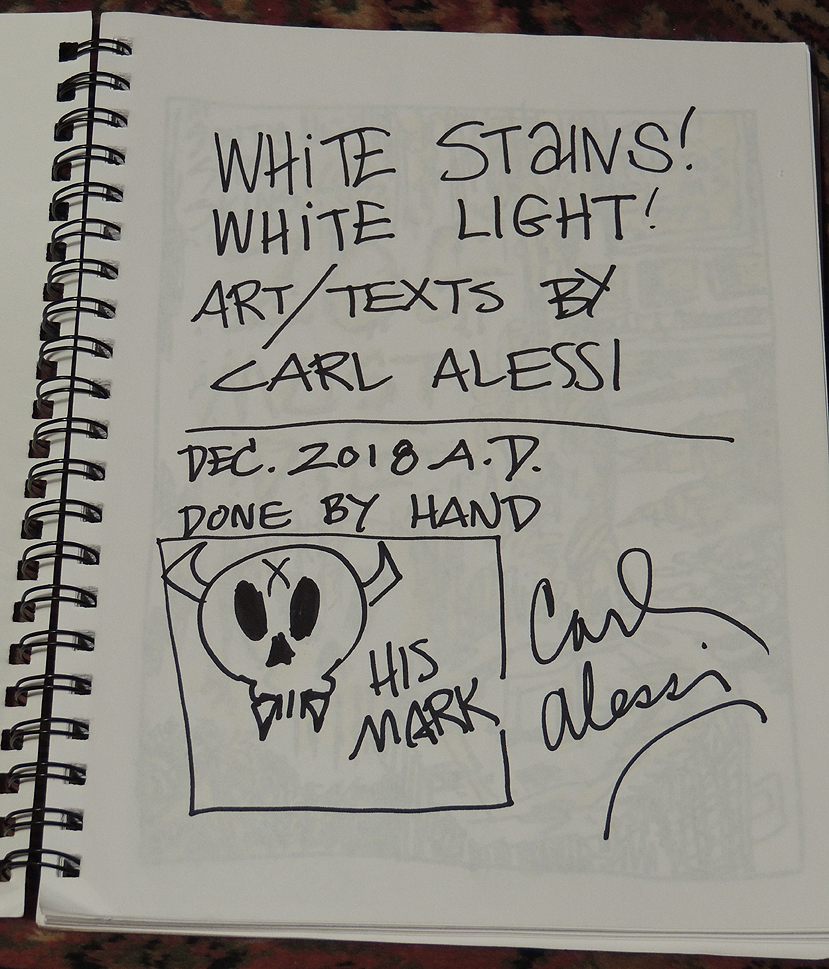 WHiTE STaINS!
WHiTE LIGHT!
ART/TEXTS BY
CARL ALESSI
DEC. 2018 A.D.
DONE BY HAND
HIS
MARK
Carl
Alessi